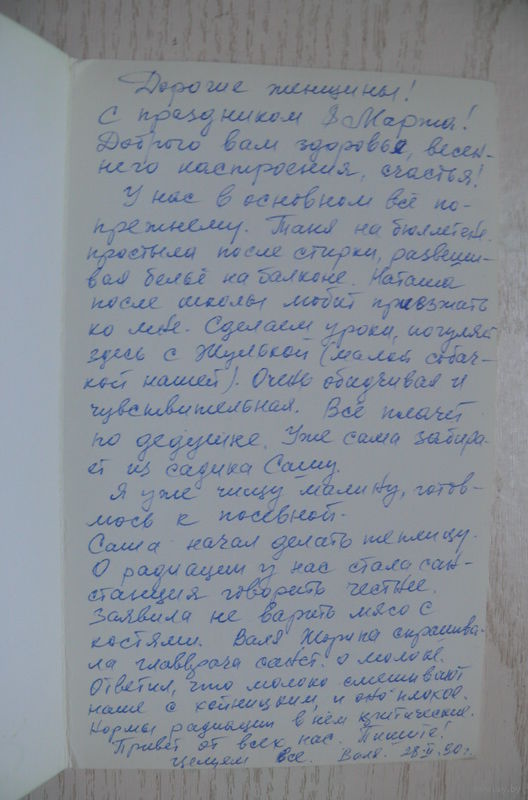 Дорогие женщины!
С праздником 8 Марта!
Доброго вам здоровья, весен-
него настроения, счастья!
У нас в основном всё по-
прежнему. Таня на бюллетене.
простыла после стирки, развеши-
вая бельё на балконе. Наташа
после школы любит приезжать
ко мне. Сделаем уроки, погуляем
здесь с Жулькой (малой собач-
кой нашей). Очень обидчивая и
чувствительная. Всё плачет
по дедушке. Уже сама забира-
ет из садика Сашу.
Я уже чищу малину, готов-
люсь к посевной.
Саша начал делать теплицу.
О радиации у нас стала сан-
станция говорить честнее.
Заявила не варить мясо с
костями. Валя спрашива-
ла главврача санст. о молоке.
Ответил, что молоко смешивают
наше с хойницким, и оно плохое.
Нормы радиации в нём критические.
Привет от всех нас. Пишите!
Целуем все. Валя. 28.II.90г.